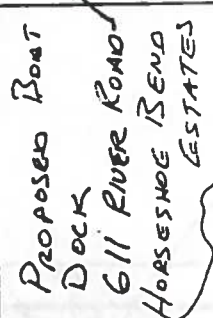 PROPOSED BOAT
DOCK
611 RIVER ROAD
HORSESHOE BEND
ESTATES